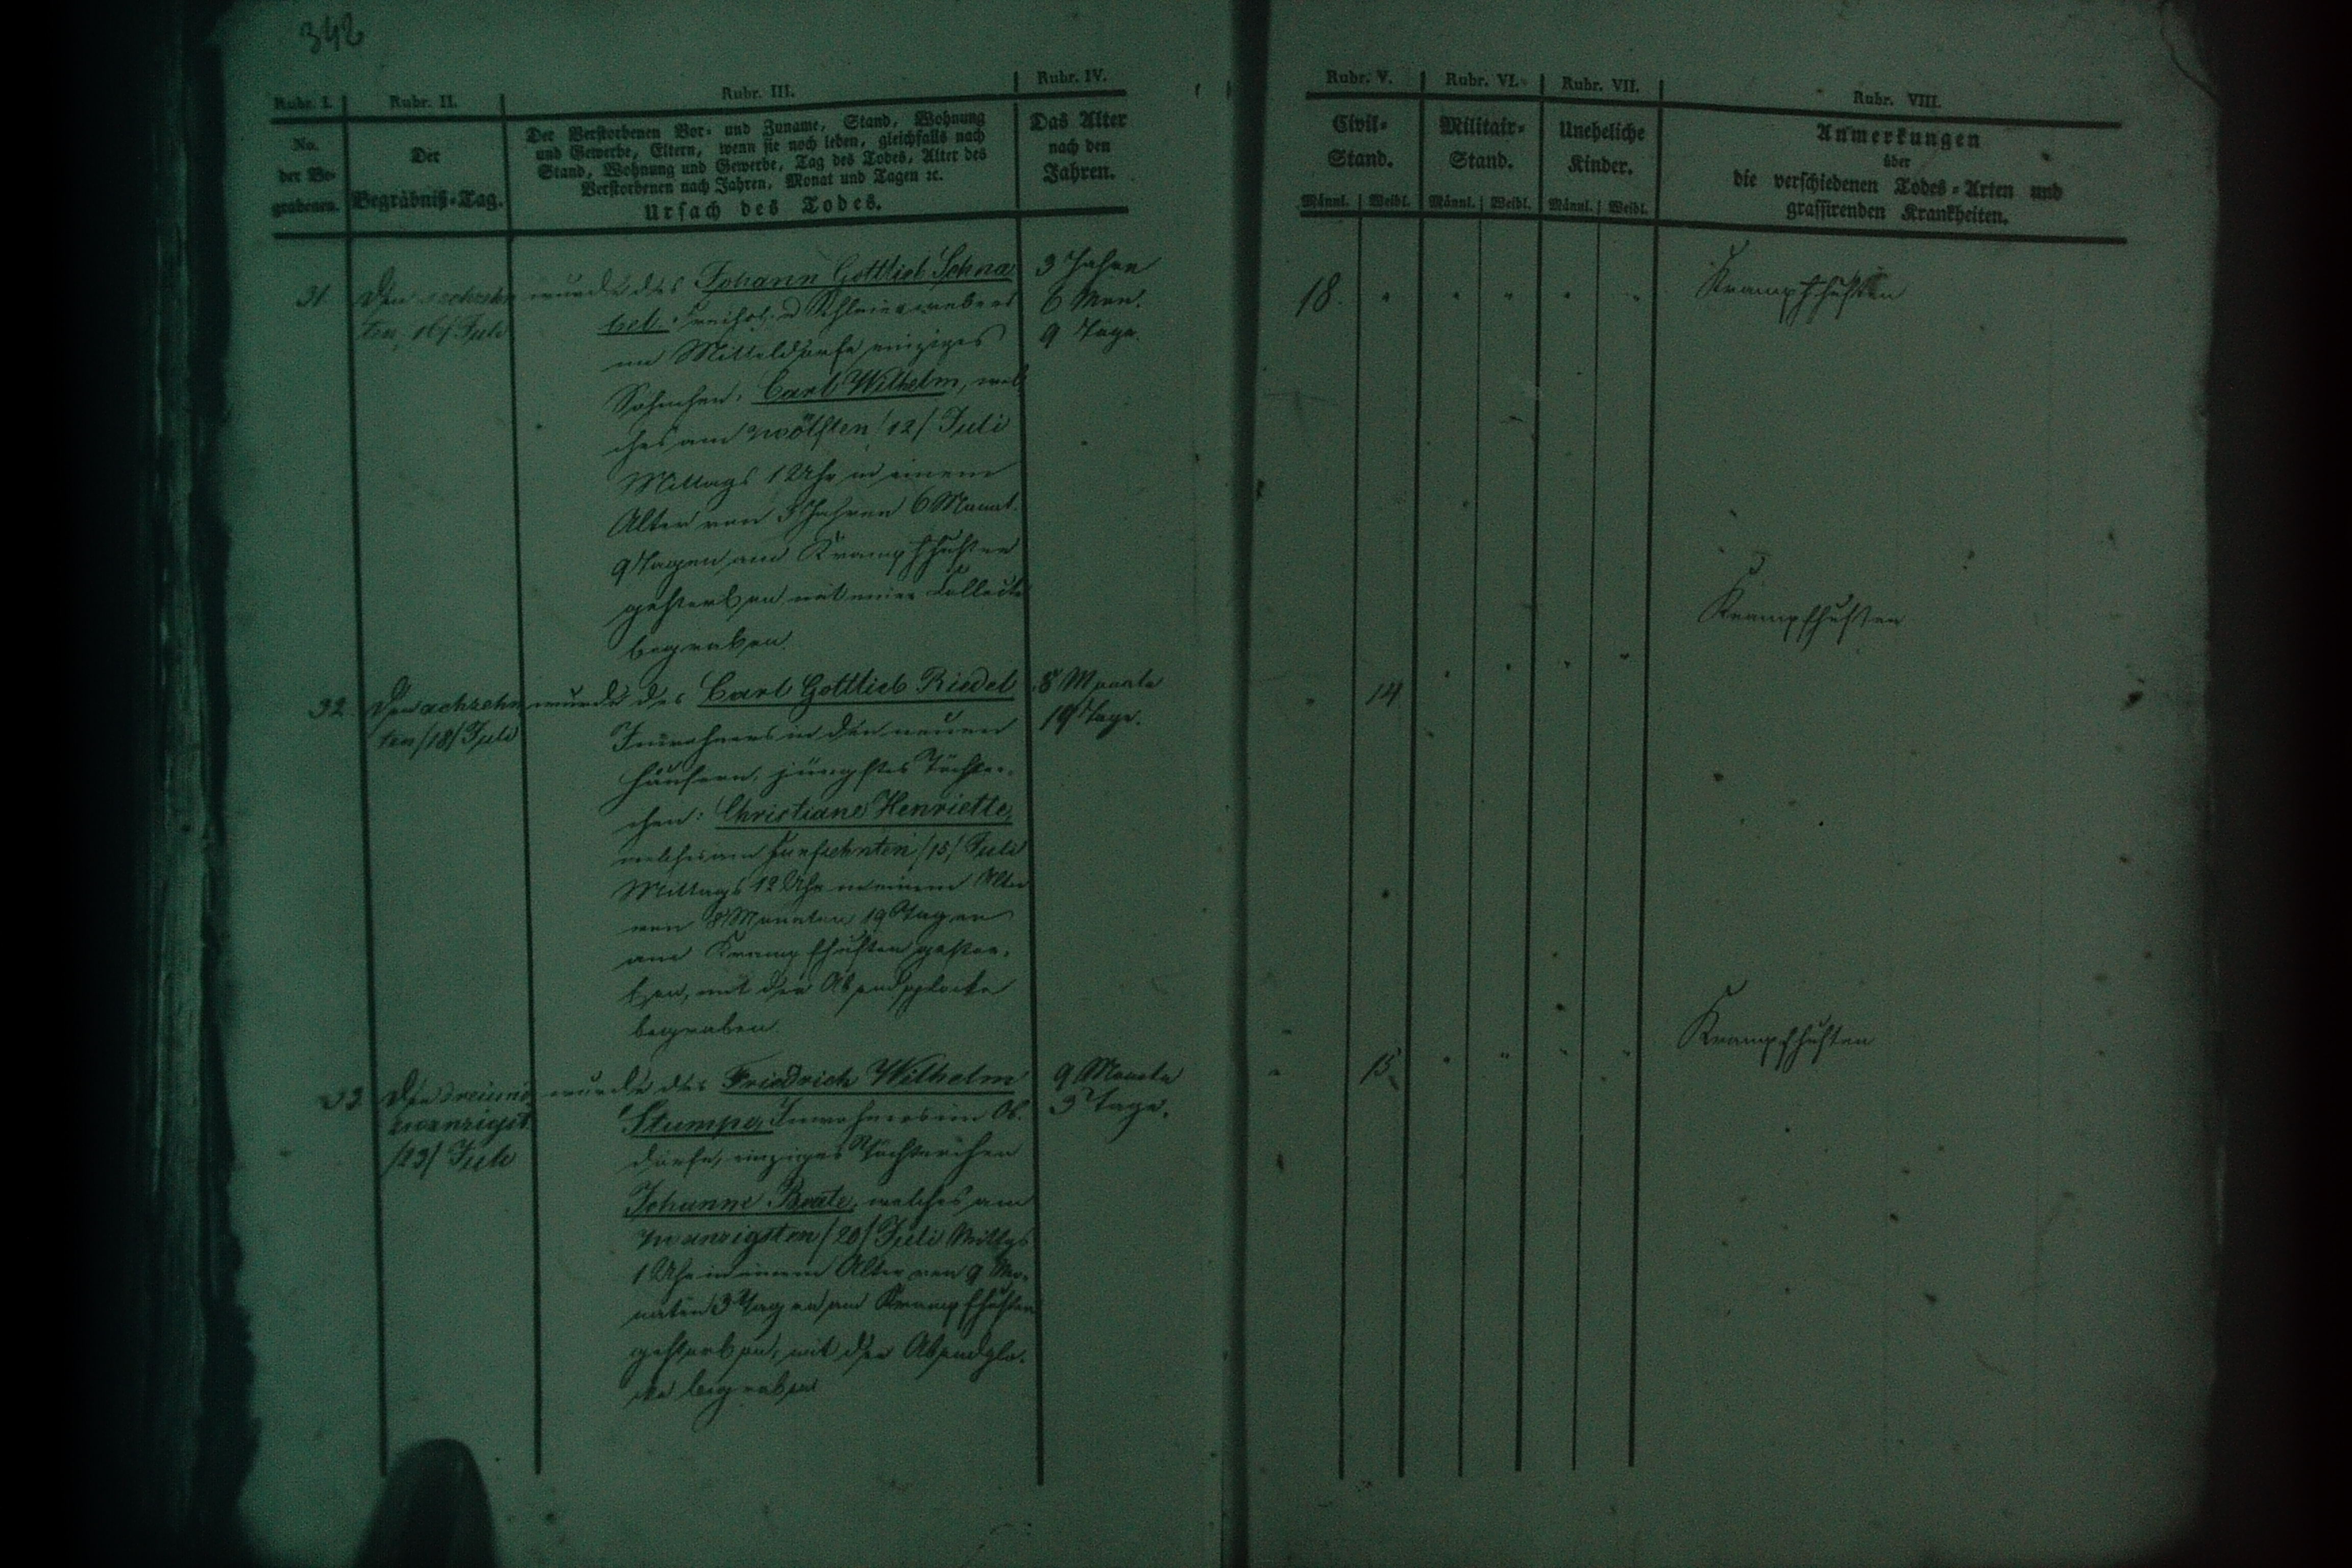 342
Rubr. I.
Rubr. II.
Rubr. III.
Rubr. IV.
No.
der Be-
grabenen.
Der
Begräbniß-Tag.
Der Verstorbenen Vor- und Zuname, Stand, Wohnung
und Gewerbe, Eltern, wenn sie noch leben, gleichfalls nach
Stand, Wohnung und Gewerbe, Tag des Todes, Alter des
Verstorbenen nach Jahren, Monat und Tagen ꝛc.
Ursach des Todes.
Das Alter
nach den
Jahren.
31.
Den sechzehn
ten, 16/ Juli
wurde des Johann Gottlieb Schna
bel Freihsl. u Schleierwebers
im Mitteldorfe einziges
Söhnchen, Carl Wilhelm, wel
ches am zwölften /12/ Juli
Mittags 1 Uhr in einem
Alter von 3 Jahren 6 Monat.
9 Tagen am Krampfhusten
gestorben mit einer Collecte
begraben.
3 Jahre
6 Mon.
9 Tage.
32.
Den achzehn
ten /18/ Juli
wurde des Carl Gottlieb Riedel
Inwohners in den neuen
Häusern, jüngstes Töchter-
chen: Christiane Henriette,
welches am funfzehnten /15/ Juli
Mittags 12 Uhr in einem Alter
von 8 Monaten 19 Tagen
am Krampfhusten gestor-
ben, mit der Abendglocke
begraben.
8 Monate
19 Tage.
33.
Den dreiund
zwanzigst.
/23/ Juli
wurde des Friedrich Wilhelm
Stumpe, Inwohners im Ob.
dorfe, einziges Töchterchen
Johanne Beate, welches am
zwanzigsten /20/ Juli Mittgs
1 Uhr in einem Alter von 9 Mo-
naten 3 Tagen am Krampfhusten
gestorben, mit der Abendglo-
cke begraben
9 Monate
3 Tage.
Rubr. V.
Rubr. VI.
Rubr. VII.
Rubr. VIII.
Civil-
Stand.
Militair-
Stand.
Uneheliche
Kinder.
Anmerkungen
über
die verschiedenen Todes-Arten und
grassirenden Krankheiten.
Männl. Weibl. Männl. Weibl. Männl. Weibl.
18. " " " " "
Krampfhusten
" 14 " " " "
Krampfhusten
" 15 " " " "
Krampfhusten